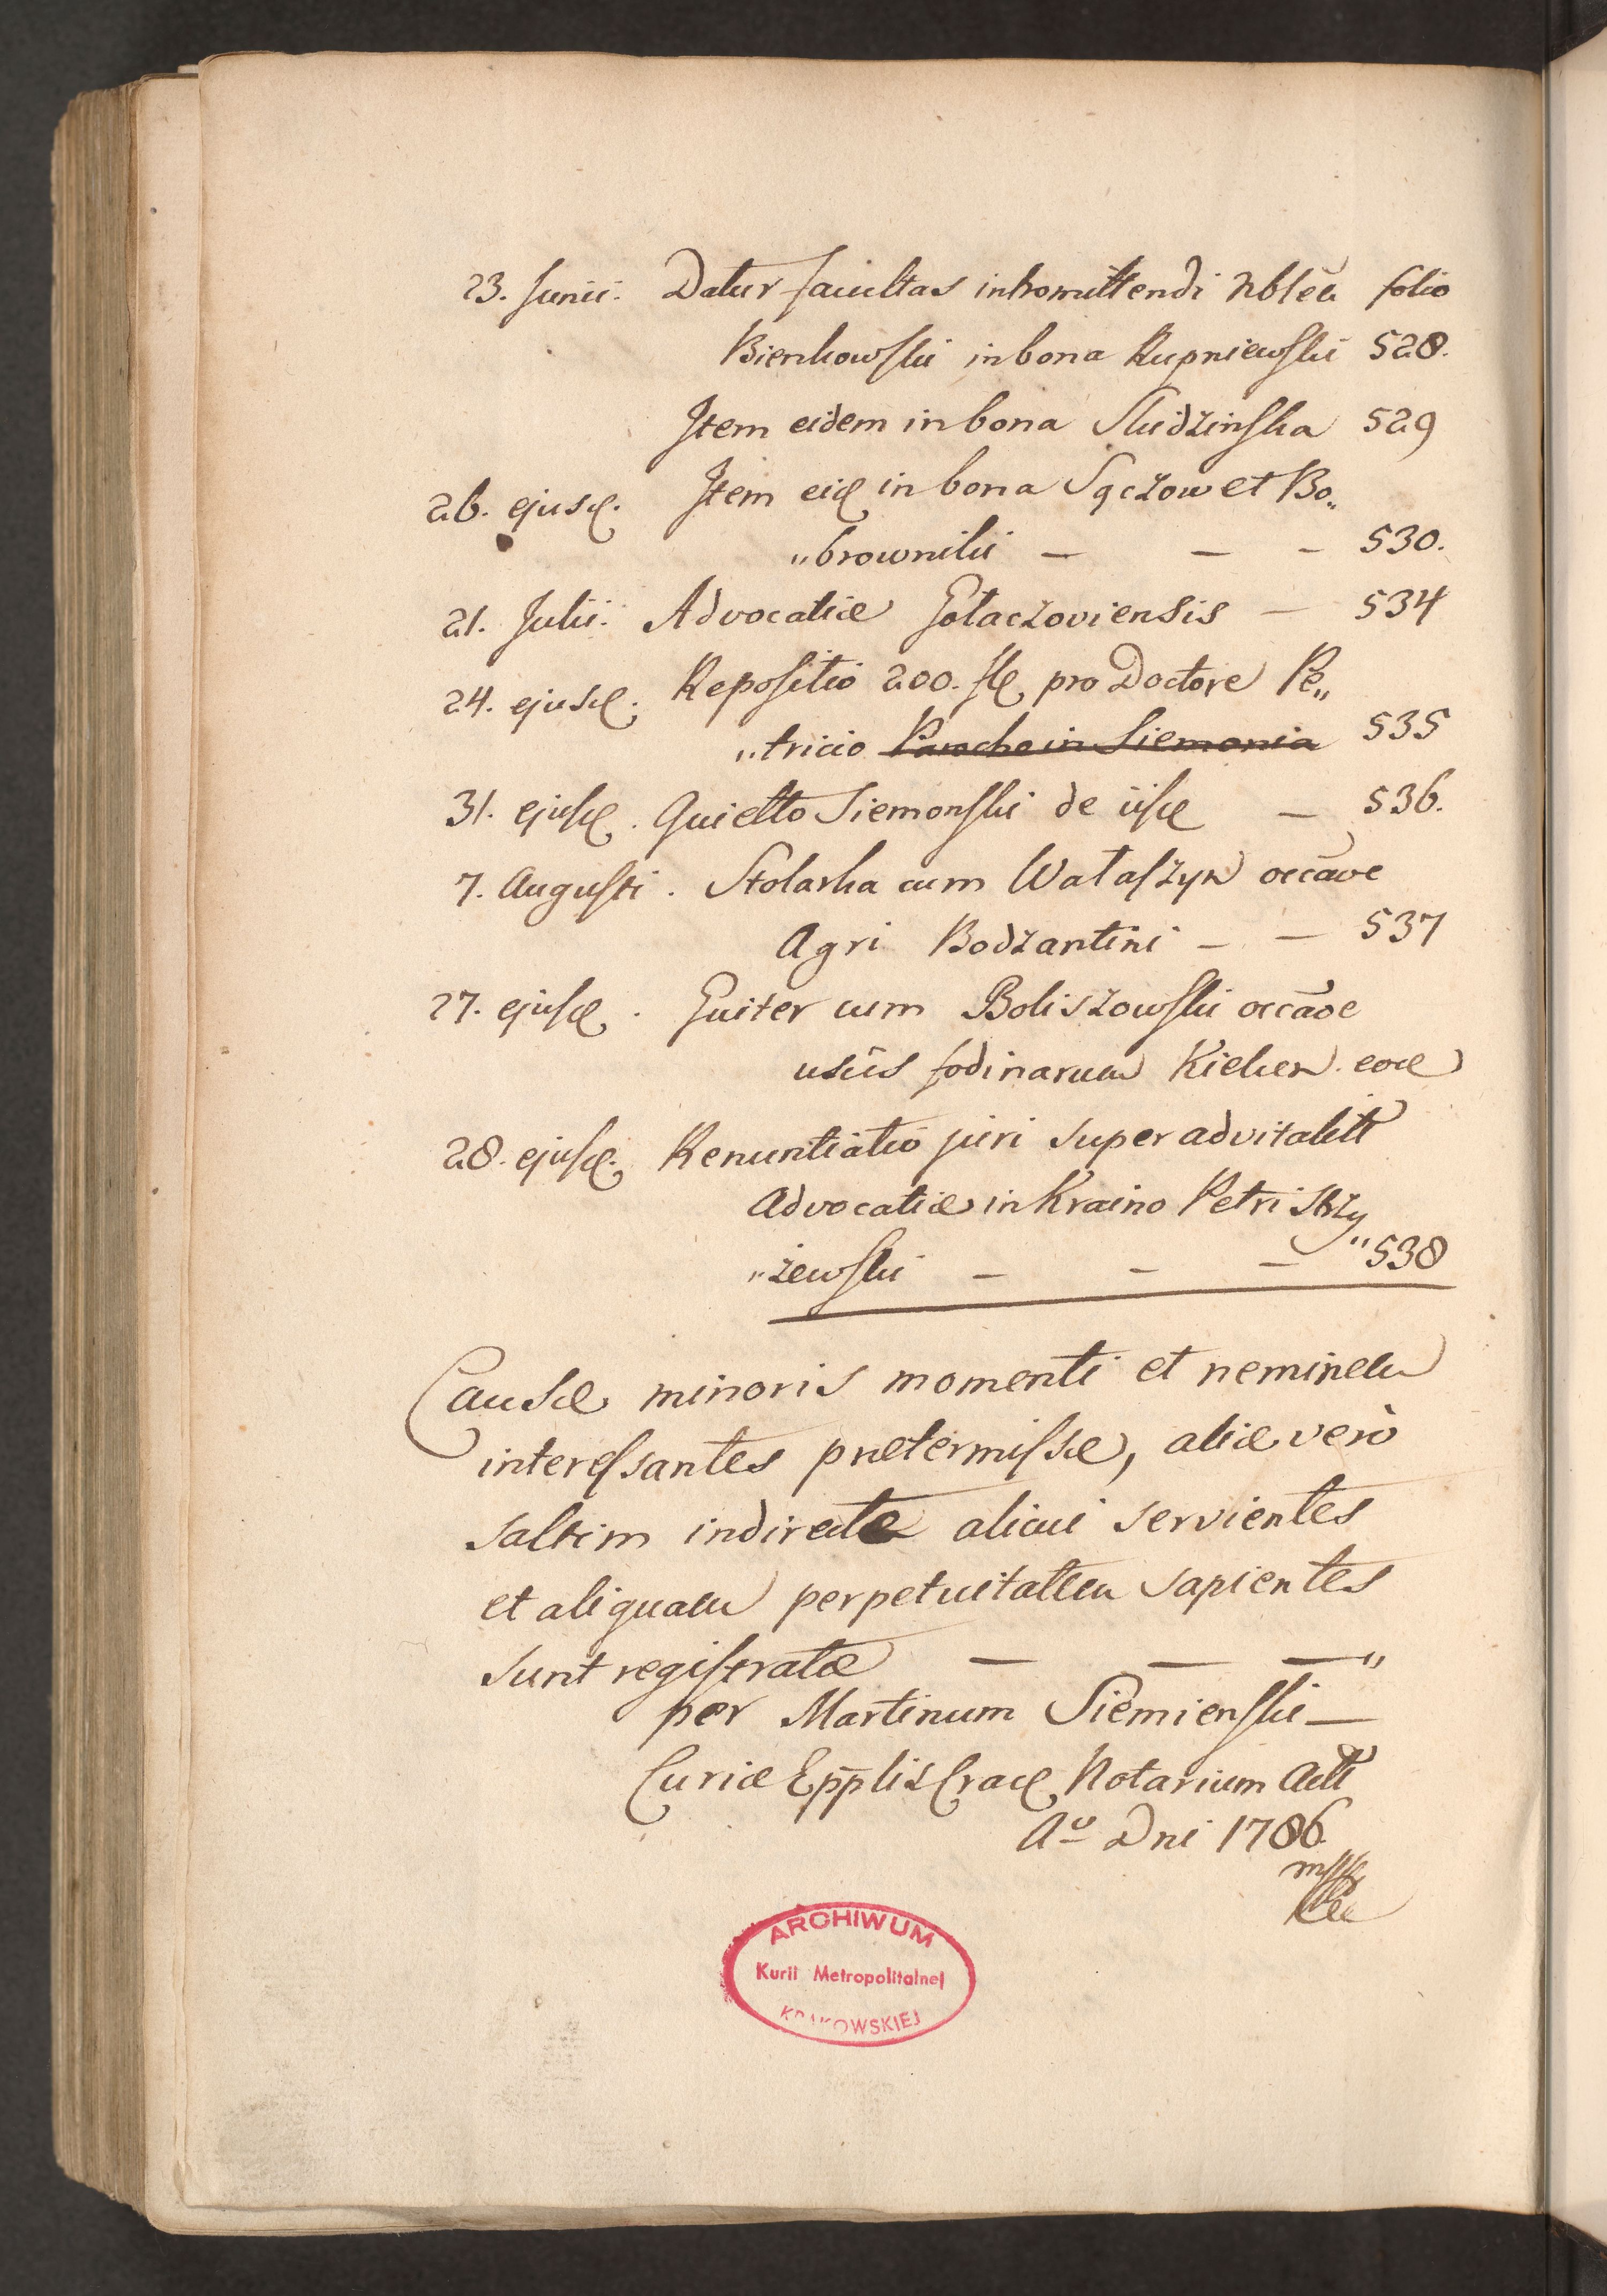 23. Junii. Datur facultas intromittendi Nblem folio
Bienkowski in bona Rupniewski 528.
Item eidem in bona Sludzinska 529
26. ejusd. Item eid in bona Sączow et Bo„
„browniki — — — 530.
21. Julii. Advocatiæ Gołaczoviensis — 534
24. ejusd. Repositio 200. fl. pro Doctore Pe„
„tricio Parocho in Siemonia 535
31. ejusd. Quietto Siemonski de iisd — 536.
7. Augusti. Stolarka cum Wataszyn occãoe
Agri Bodzantini — — 537
27. ejusd. Guiter cum Boliszowski occãoe
usûs fodinarum Kielcen. eod
28. ejusd. Renuntiatio juri super advitalitt
Advocatiæ in Kraino Petri Strzy
„żewski — — — "538
Causæ minoris momenti et neminem
interessantes prætermissæ, aliæ verò
saltim indirecte alicui servientes
et aliquam perpetuitatem sapientes
sunt registratæ — — —"
per Martinum Siemienski —
Curiæ Epplis Crac Notarium Actt
Aº Dni 1786
mpp
ARCHIWUM
Kurii Metropolitalnej
KRAKOWSKIEJ